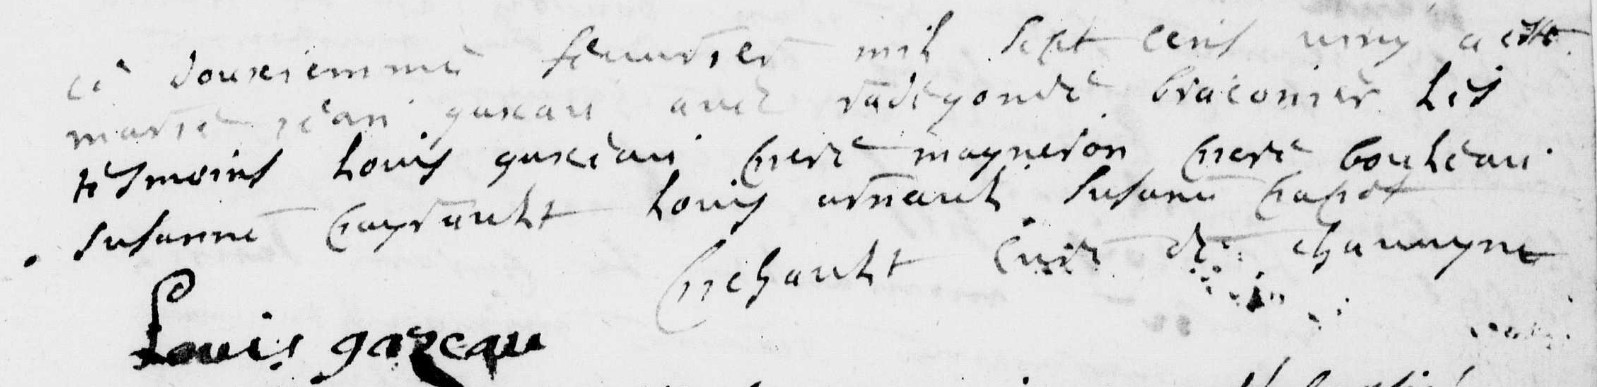 ce douxiemme feuvrier mil sept cens ving a este
marié jean gaxeau avec radegonde braconier les
tesmoins louis gaxeau pierre magneron pierre bouheau
susanne payrault louis arnault susane papot
curé de chauvigne
Louis gazeau